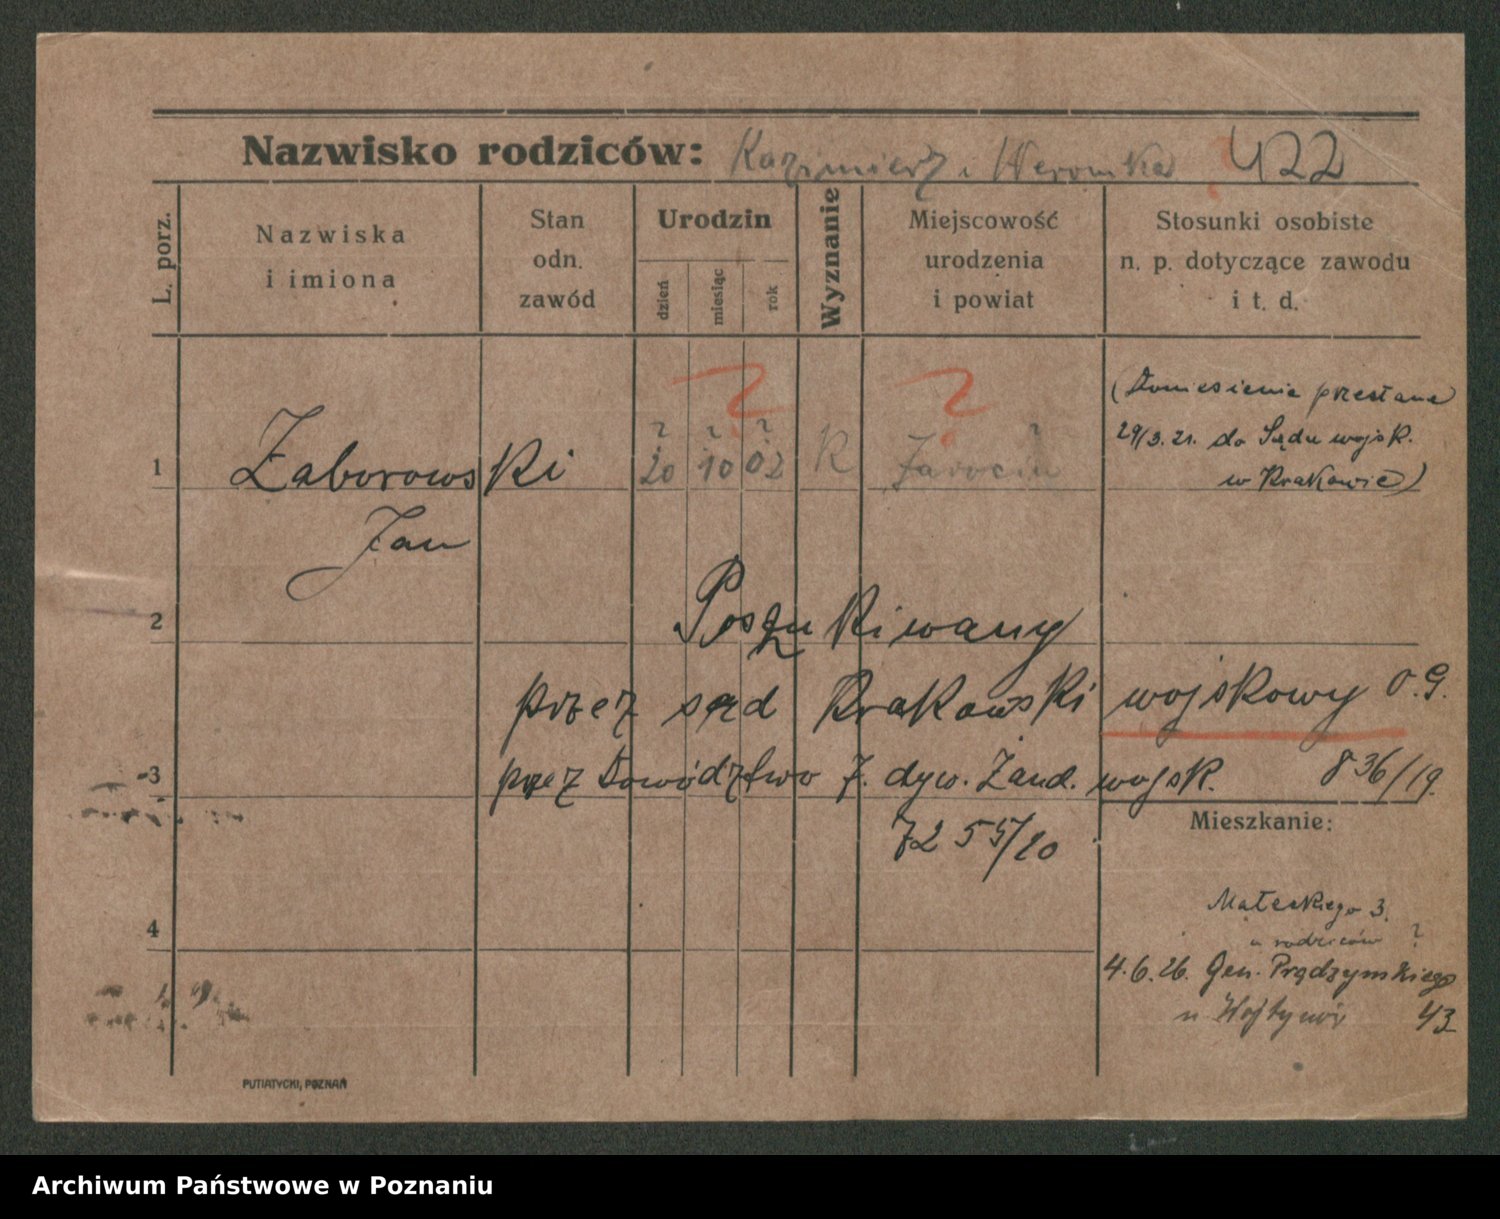 Nazwisko rodziców: Kazimierz i Weronika ? 422
L. porz.
Nazwiska
i imiona
Stan
odn.
zawód
Urodzin
dzień
miesiąc
rok
Wyznanie
Miejscowość
urodzenia
i powiat
Stosunki osobiste
n. p. dotyczące zawodu
i t. d.
? ?
(Doniesienie przesłane
? ? ? ?
29/3.21. do Sądu wojsk.
1 Zaborowski 20 10 02 K Jarocin
w Krakowie)
Jan
2 Poszukiwany
przez sąd Krakowski wojskowy O.G.
3 przez Dowództwo 7. dyw. Żand. wojsk. 836/19.
Mieszkanie:
7255/20
Małeckiego 3.
4
u rodziców ?
4.6.26. Gen. Prądzyńskiego
u Wojtynów 43
PUTIATYCKI, POZNAŃ
Archiwum Państwowe w Poznaniu